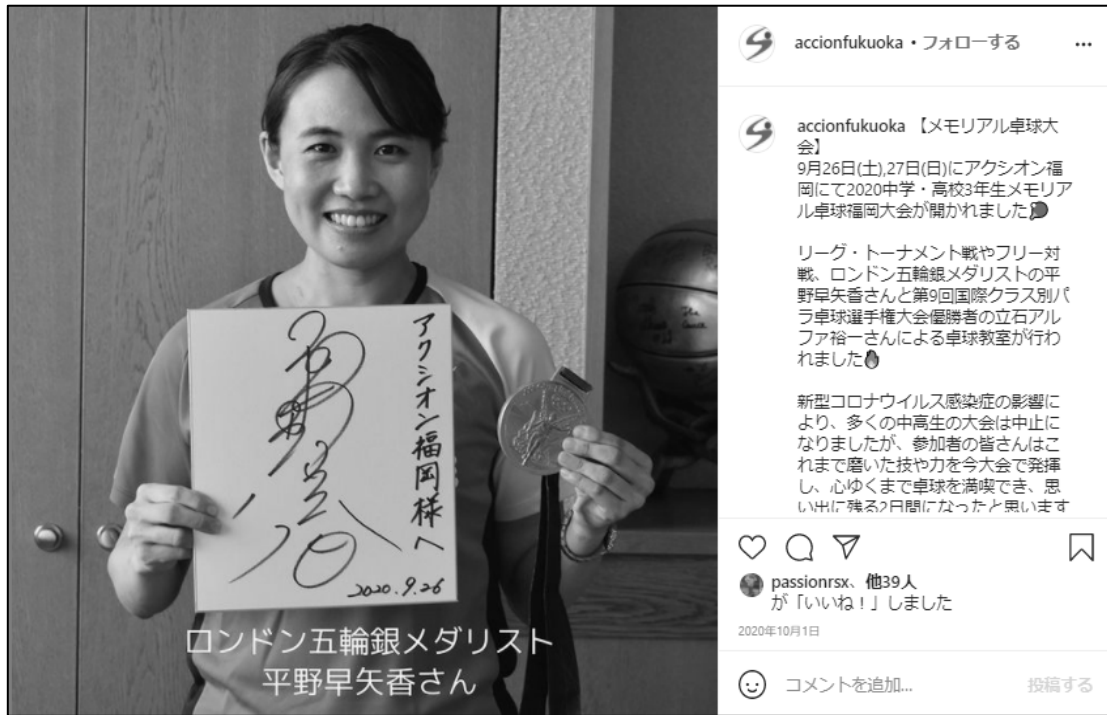 アクシオン福岡様へ
2020.9.26
ロンドン五輪銀メダリスト
平野早矢香さん
accionfukuoka • フォローする
accionfukuoka 【メモリアル卓球大
会】
9月26日(土),27日(日)にアクシオン福
岡にて2020中学・高校3年生メモリア
ル卓球福岡大会が開かれました
リーグ・トーナメント戦やフリー対
戦、ロンドン五輪銀メダリストの平
野早矢香さんと第9回国際クラス別パ
ラ卓球選手権大会優勝者の立石アル
ファ裕一さんによる卓球教室が行わ
れました
新型コロナウイルス感染症の影響に
より、多くの中高生の大会は中止に
なりましたが、参加者の皆さんはこ
れまで磨いた技や力を今大会で発揮
し、心ゆくまで卓球を満喫でき、思
い出に残る2日間になったと思います
passionrsx、他39人
が「いいね！」しました
2020年10月1日
コメントを追加...
投稿する